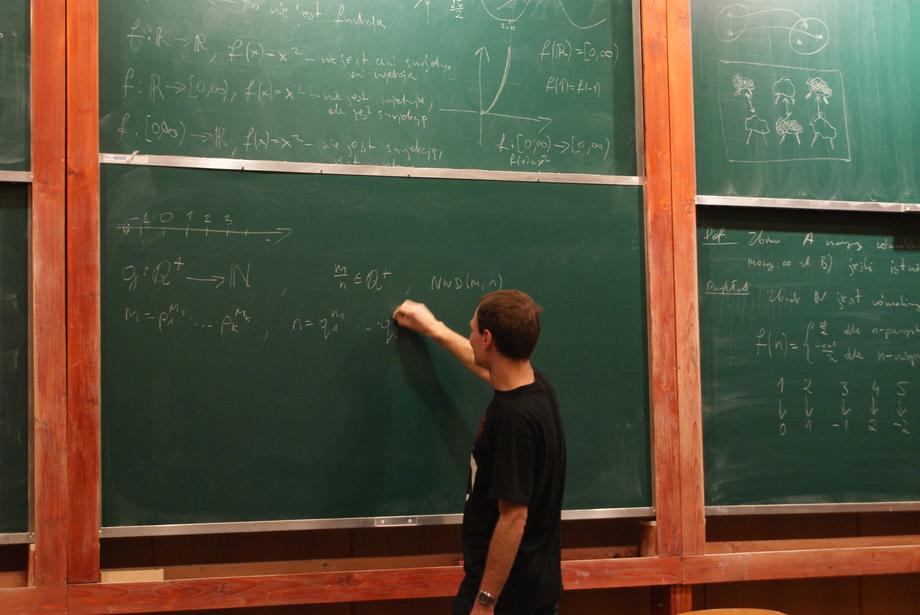 to nie jest funkcja
f: ℝ → ℝ, f(x) = x² – nie jest ani surjekcją ani injekcją
f: ℝ → [0,∞), f(x) = x² – nie jest injekcją, ale jest surjekcją
f: [0,∞) → ℝ, f(x) = x² – nie jest surjekcją,
jest
f(ℝ) = [0,∞)
f(1) = f(-1)
f: [0,∞) → [0,∞)
f(x) = x²
-1 0 1 2 3
g: ℚ⁺ → ℕ , m/n ∈ ℚ⁺ , NWD(m,n)
m = p₁^m₁ .... p_k^m_k , n = q₁^n₁ ... q
Def. Zbiór A nazyw
B) jeśli
Przykład Zbiór ℕ jest
f(n) = { n/2 dla n-parzy
dla n-niep
1 2 3 4 5
↓ ↓ ↓ ↓ ↓
0 1 -1 2 -2